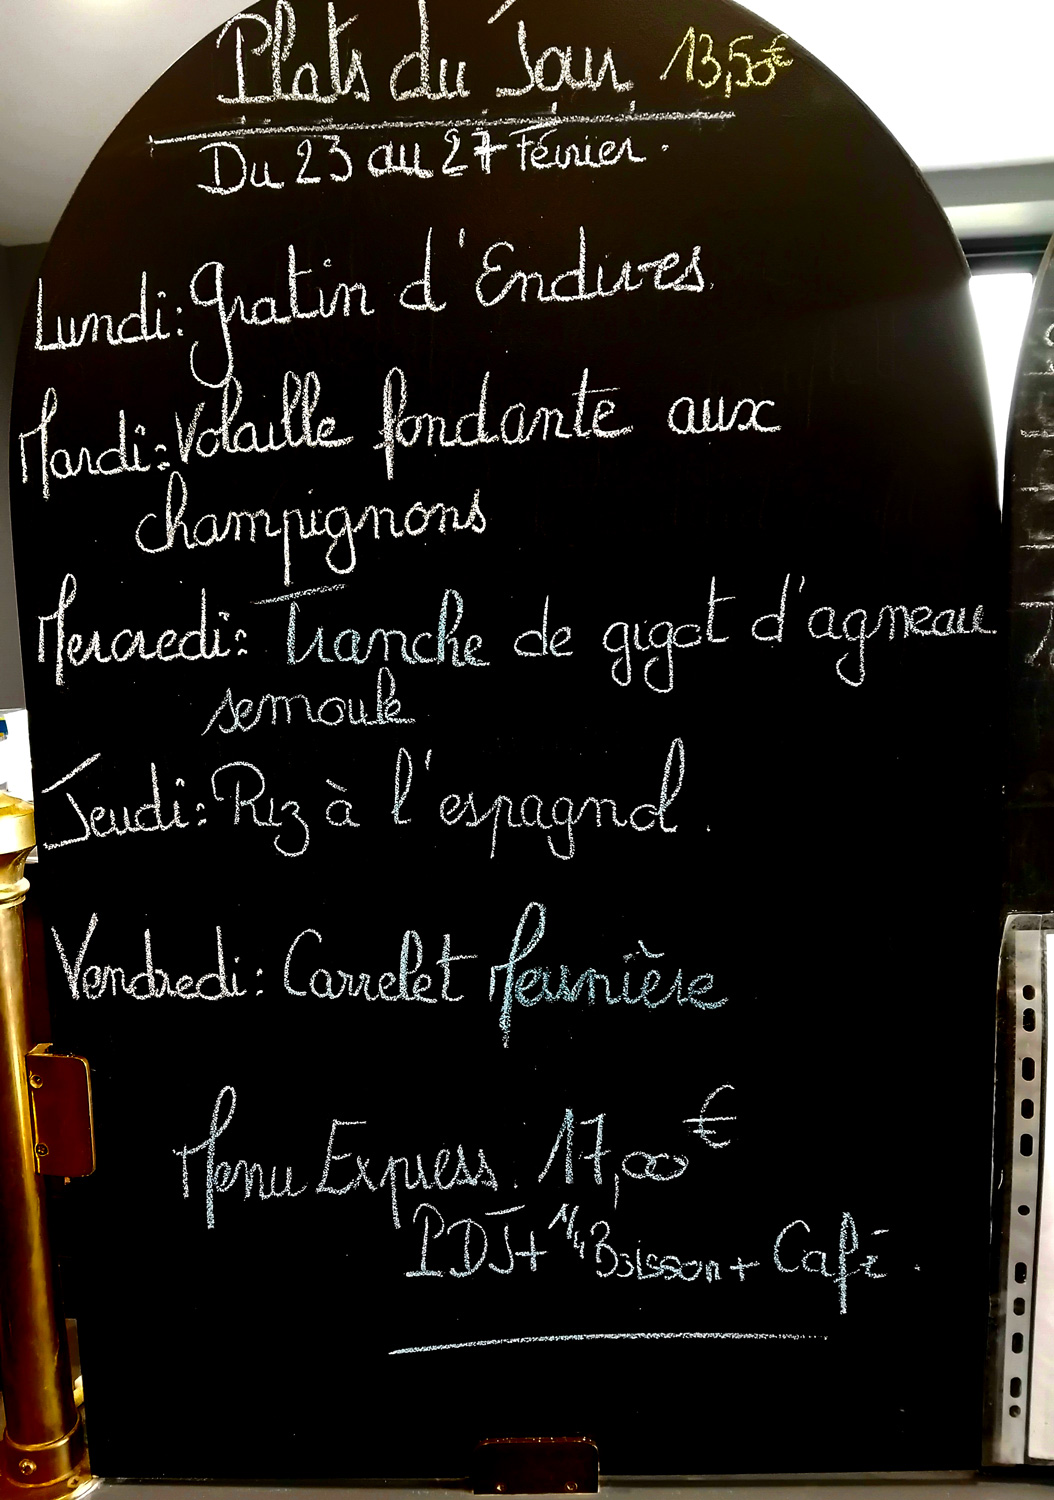 Plats du Jour 13,50€
Du 23 au 27 Février.
Lundi: gratin d'Endives.
Mardi: Volaille fondante aux
champignons
Mercredi: Tranche de gigot d'agneau
semoule
Jeudi: Riz à l'espagnol.
Vendredi: Carrelet Meunière
Menu Express. 17,00€
PDJ + 1/4 Boisson + Café.